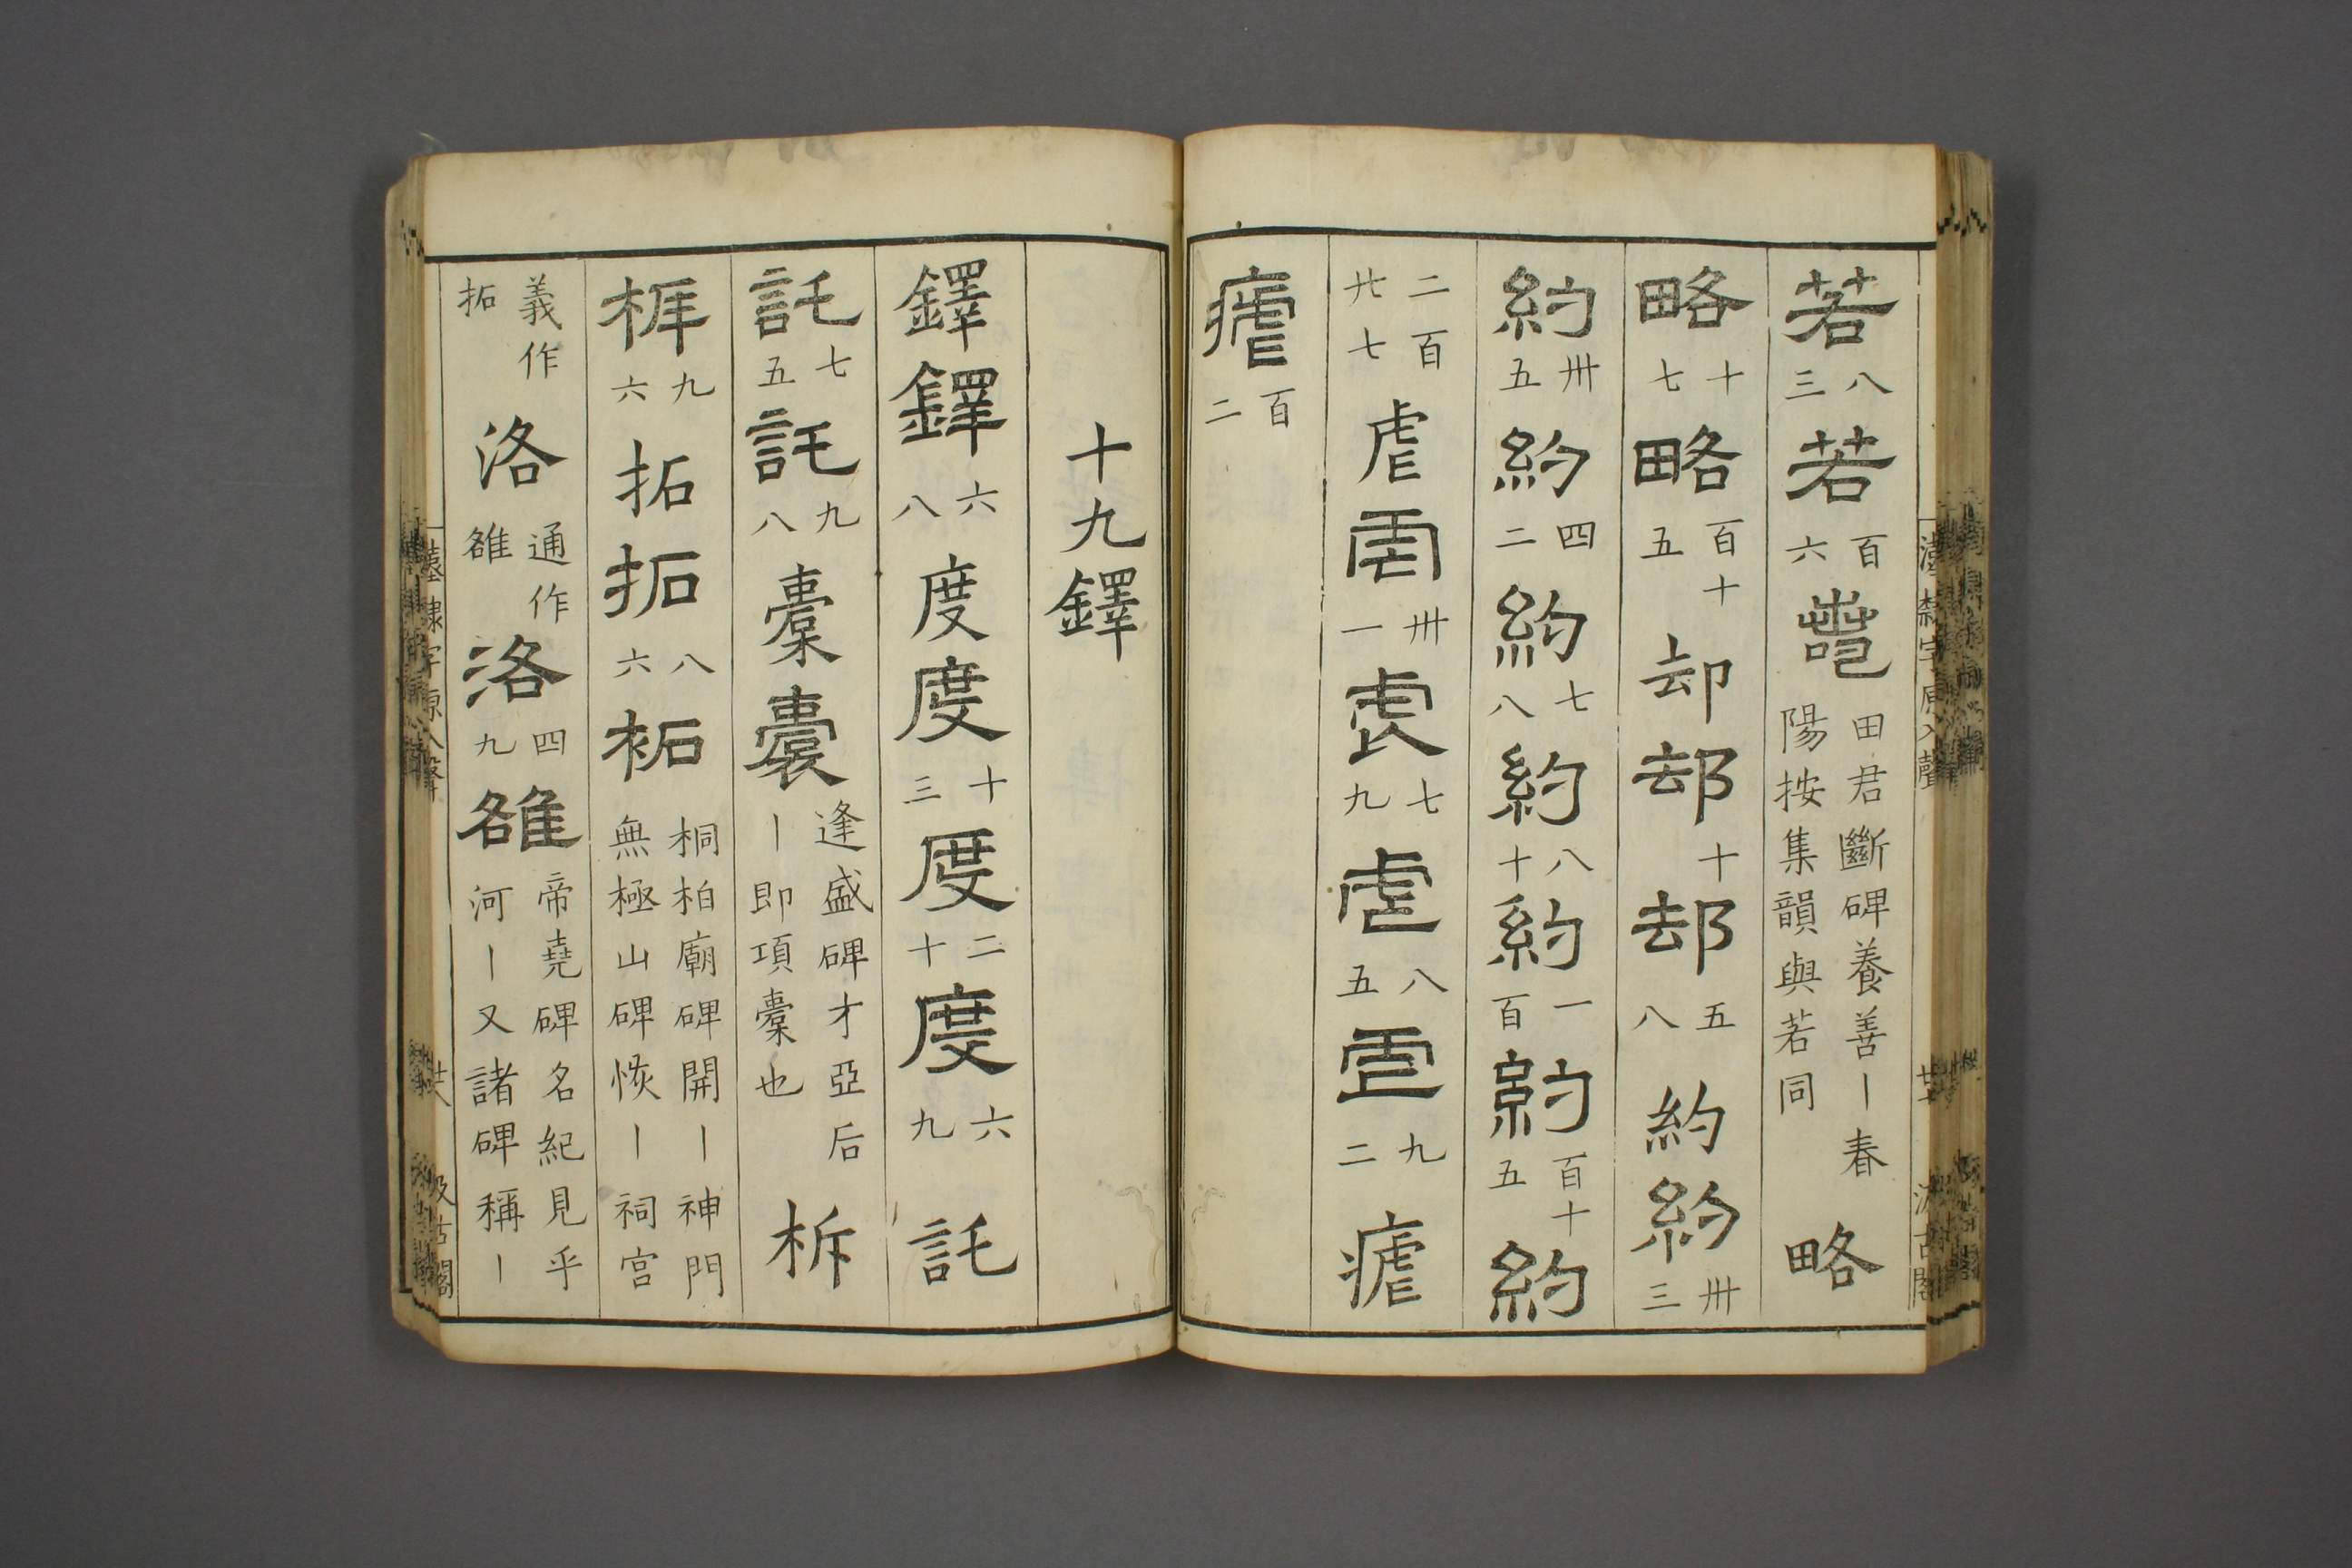 若八三若百六𧅎田君斷碑養善丨春陽按集韻與若同略
略十七略百十五却却十却五八約約卅三
約卅五約四二約七八約八十約一百約百十五約
二百廿七虐虐卅一虐七九虐八五虐九二瘧
瘧百二
十九鐸
鐸鐸六八度度十三度二十度六九託
託七五託九八橐橐逢盛碑才亞后丨即項橐也柝
㭊九六拓拓八六袥桐柏廟碑開丨神門無極山碑恢丨祠宫
義作拓洛通作雒洛四九雒帝堯碑名紀見乎河丨又諸碑稱丨
漢隸字原入聲
汲古閣